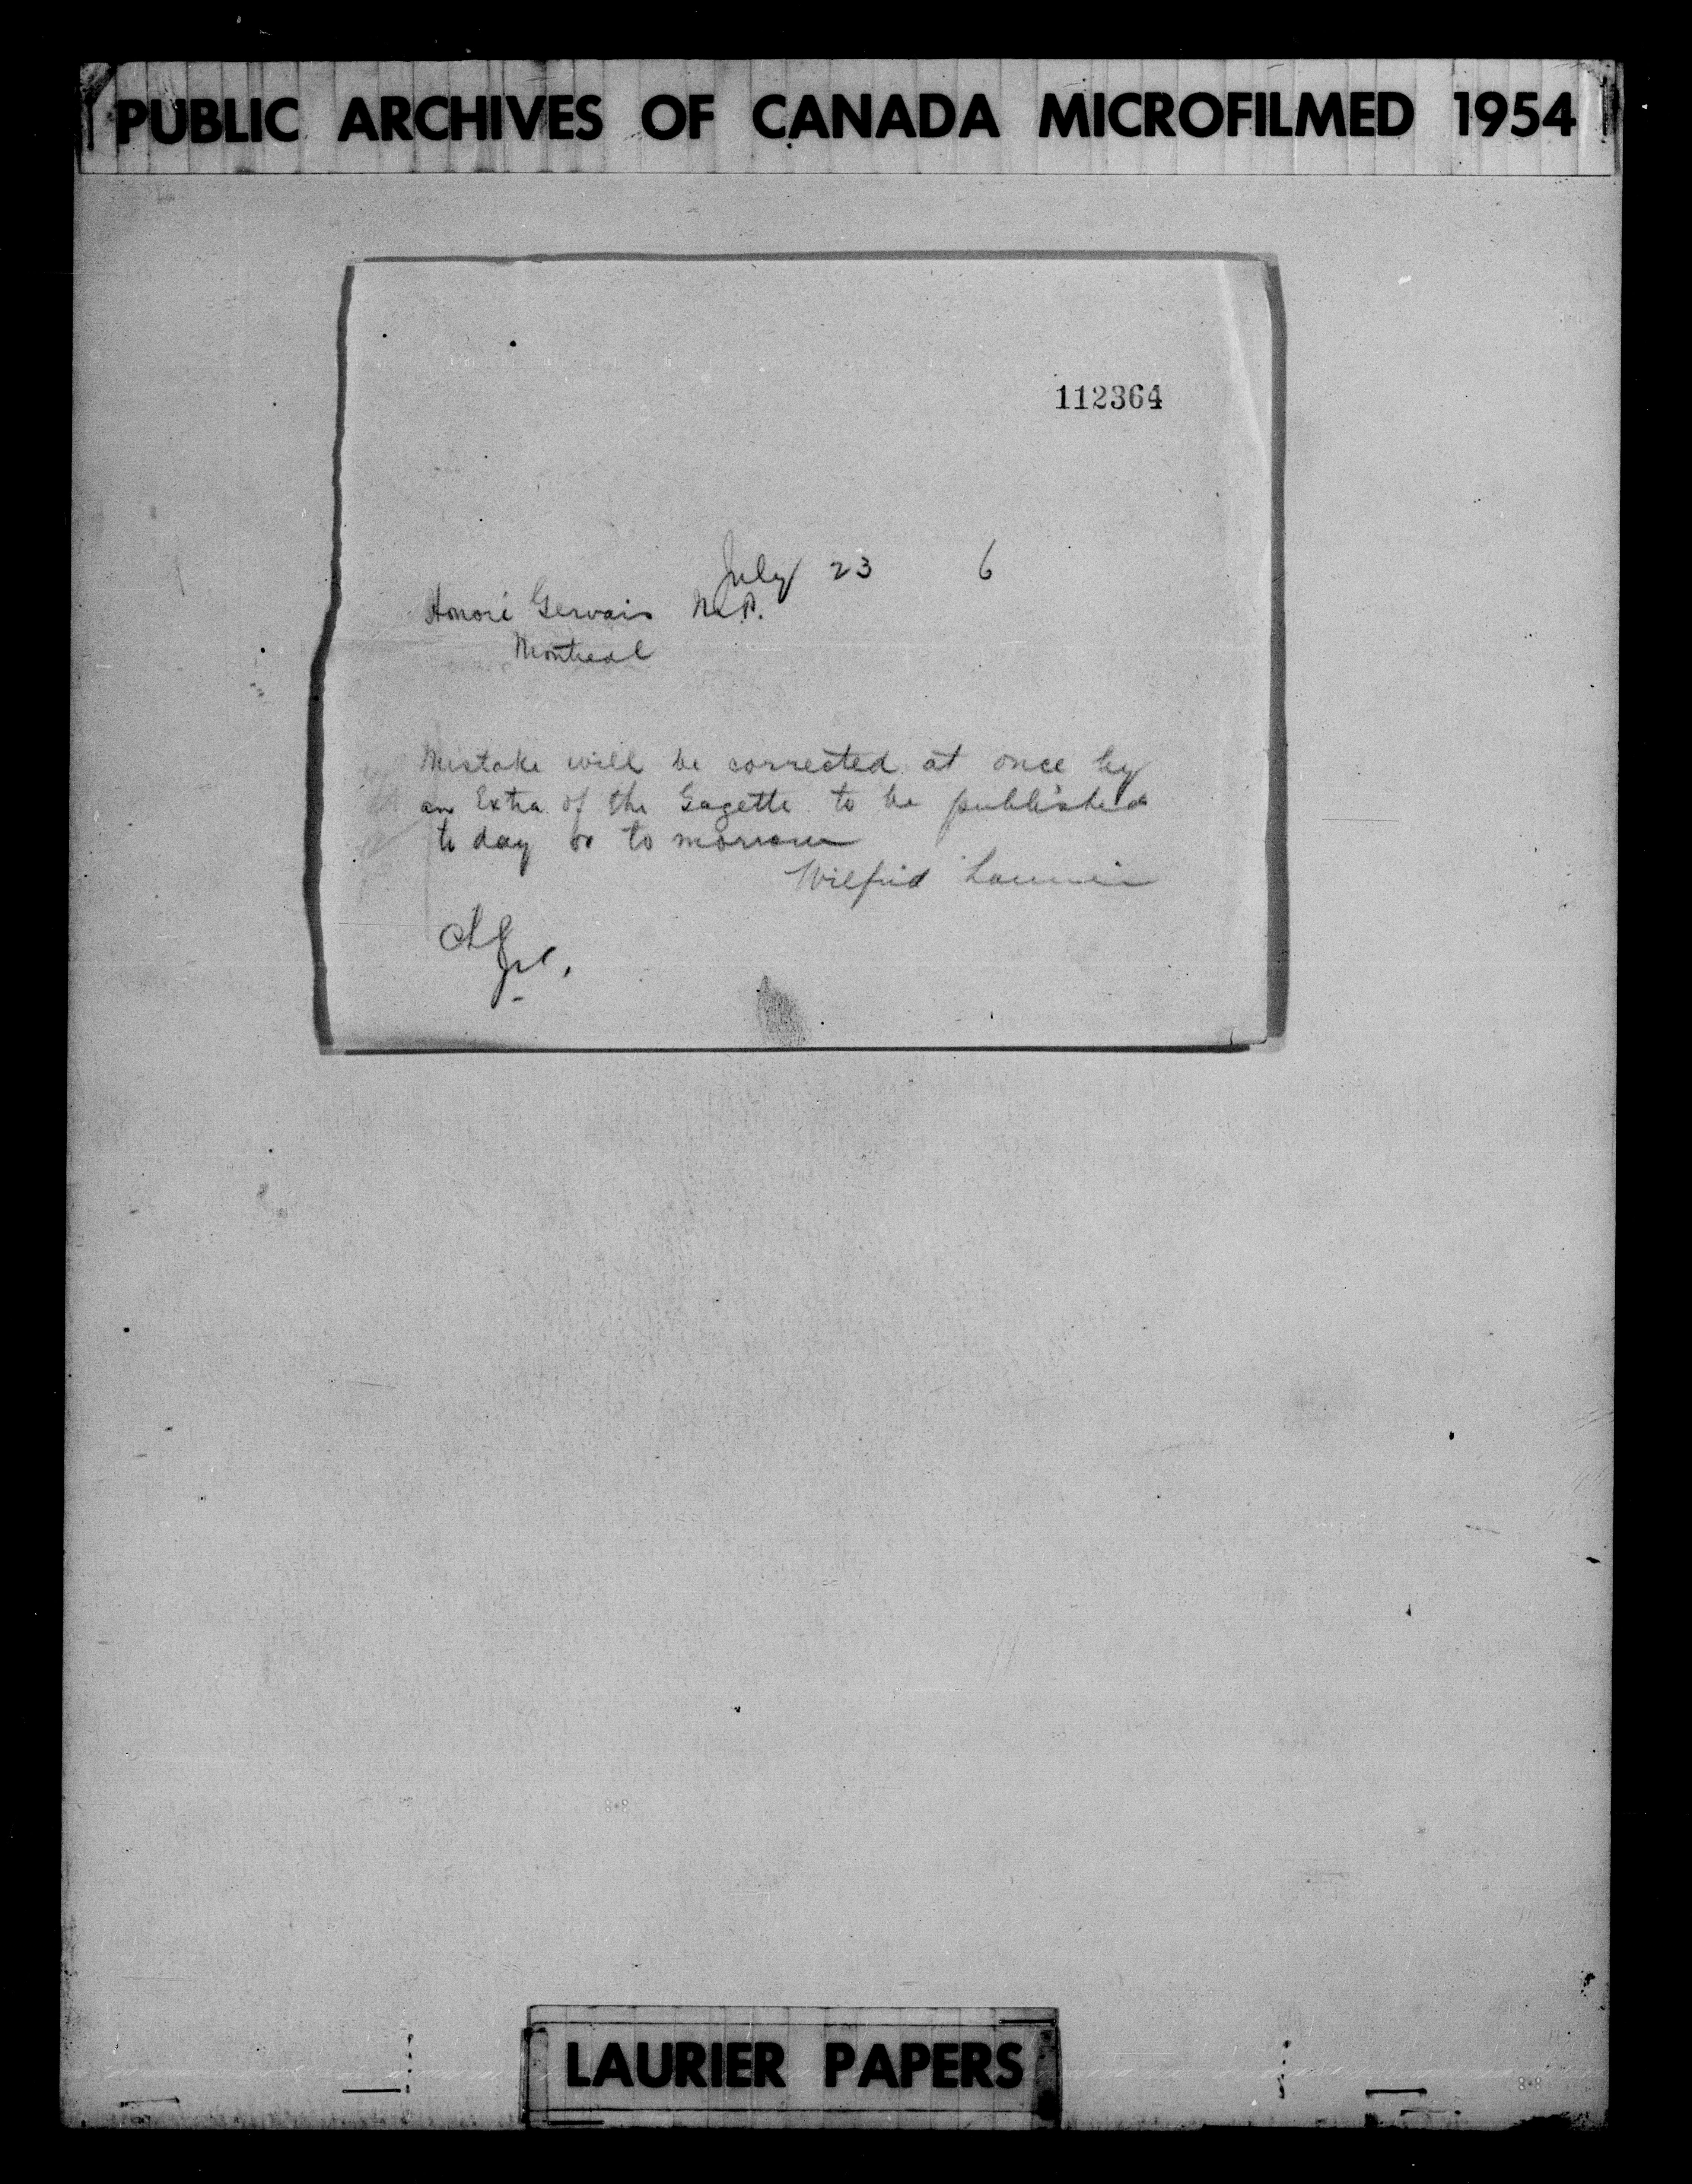 PUBLIC ARCHIVES OF CANADA MICROFILMED 1954
112364
July 23 6
Honoré Gervais M.P.
Montreal
Mistake will be corrected at once by
an Extra of the Gazette to be published
to day or to morrow
Wilfrid Laurier
LAURIER PAPERS